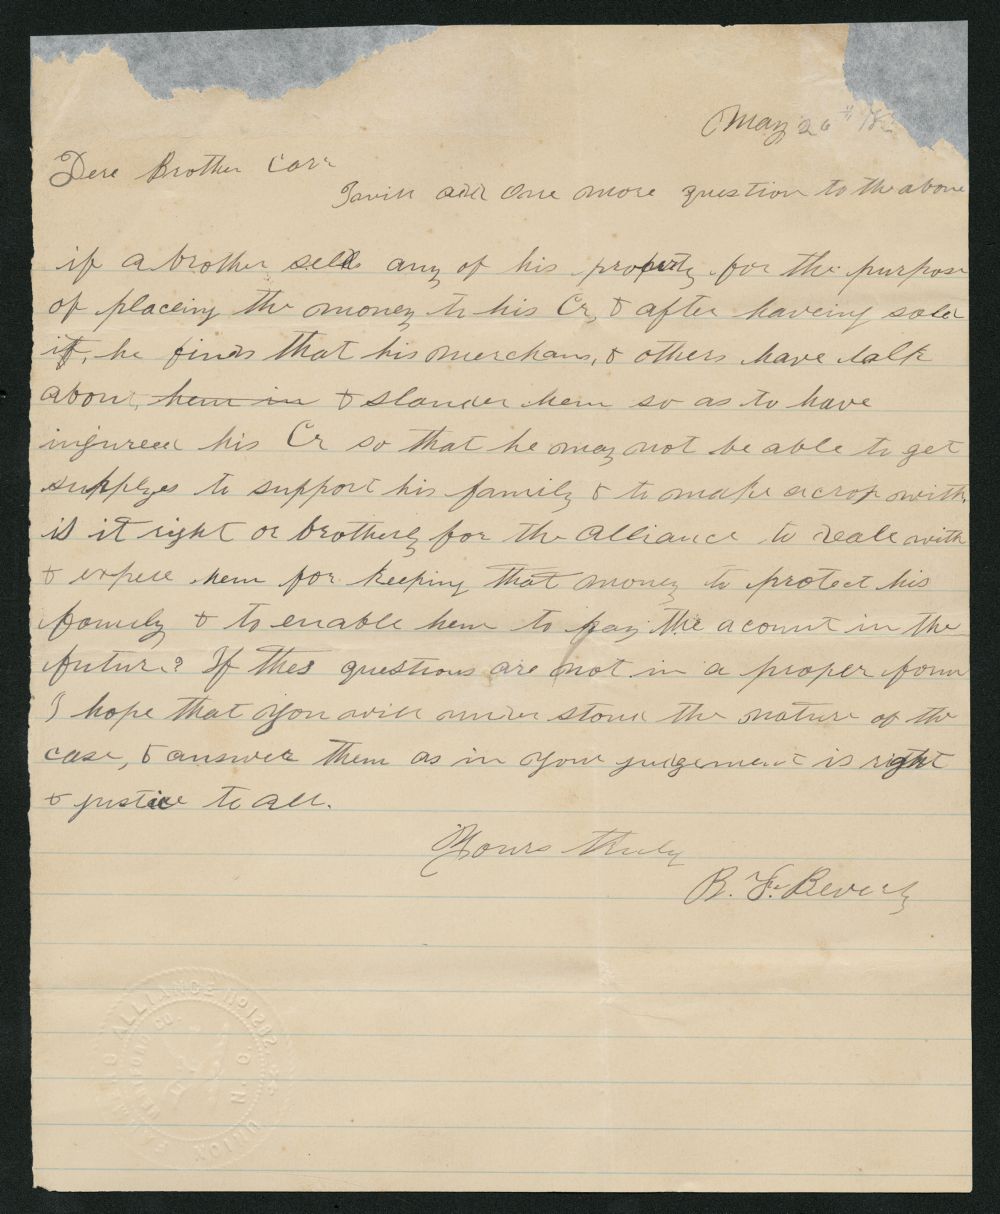 May 26th 18
Dere Brother Carr
I will add One more question to the above
if a brother sells any of his property for the purpose
of placeing the money to his Cr, & after haveing sold
it, he finds that his merchans, & others have talk
about, hem in & slander hem so as to have
ingureed his Cr so that he may not be able to get
supplyes to support his family & to make a crop with,
is it right or brotherly for the alliance to deale with
& expele hem for keeping that money to protect his
family & to enable hem to pay the acount in the
future? If thes questions are not in a proper form
I hope that you will under stand the nature of the
case, & answer them as in your judgement is right
& justice to all.
Yours truly
B. F. Beverly
ALLIANCE No 1282
HERTFORD CO.
N. C.
UNION